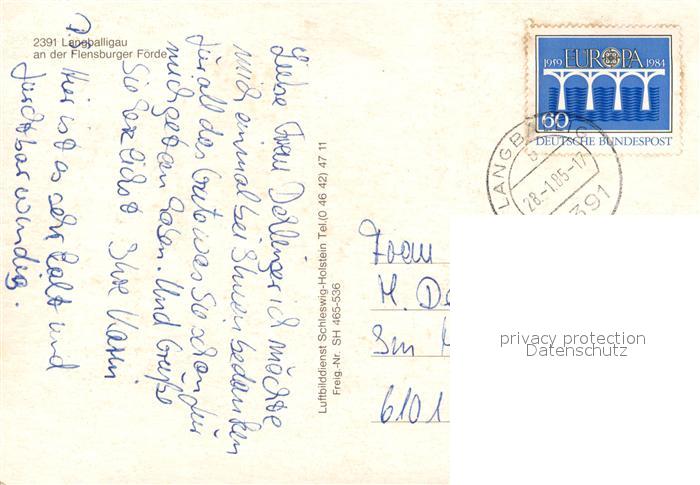 2391 Langballigau
an der Flensburger Förde
Liebe Frau Dellinger ich möchte
mich einmal bei Ihnen bedanken
für all das Gute was Sie schon für
mich getan haben. Und Grüße
Sie herzlichst Ihre Karin
P.S.
Hier ist es sehr kalt und
furchtbar windig.
Luftbilddienst Schleswig-Holstein Tel.(0 46 42) 47 11
Freig.-Nr. SH 465-536
1959 EUROPA 1984
60
DEUTSCHE BUNDESPOST
LANGBALLIG
28.-1.85-17
2391
Frau
H. De
Im
6101
privacy protection
Datenschutz